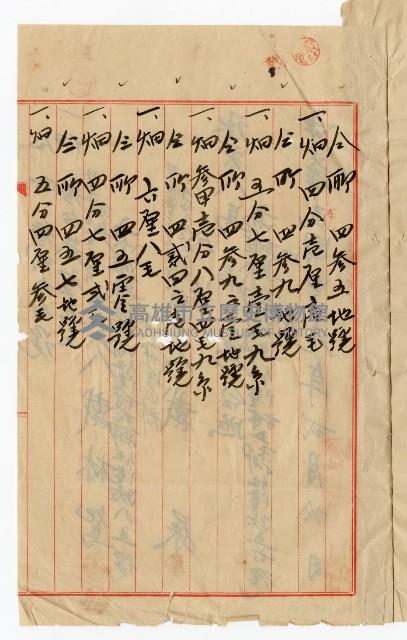 仝所 四參五地號
一、畑 四分壱厘六毛
仝所 四參九地號
一、畑 五分七厘壱毛九糸
仝所 四參九ノ五地號
一、畑 參甲壱分八厘四毛九糸
仝所 四弍四ノ六地號
一、畑 六厘八毛
仝所 四五零號
一、畑 四分七厘弍毛
仝所 四五七地號
一、畑 五分四厘參毛
高雄市立歷史博物館
KAOHSIUNG MUSEUM OF HISTORY